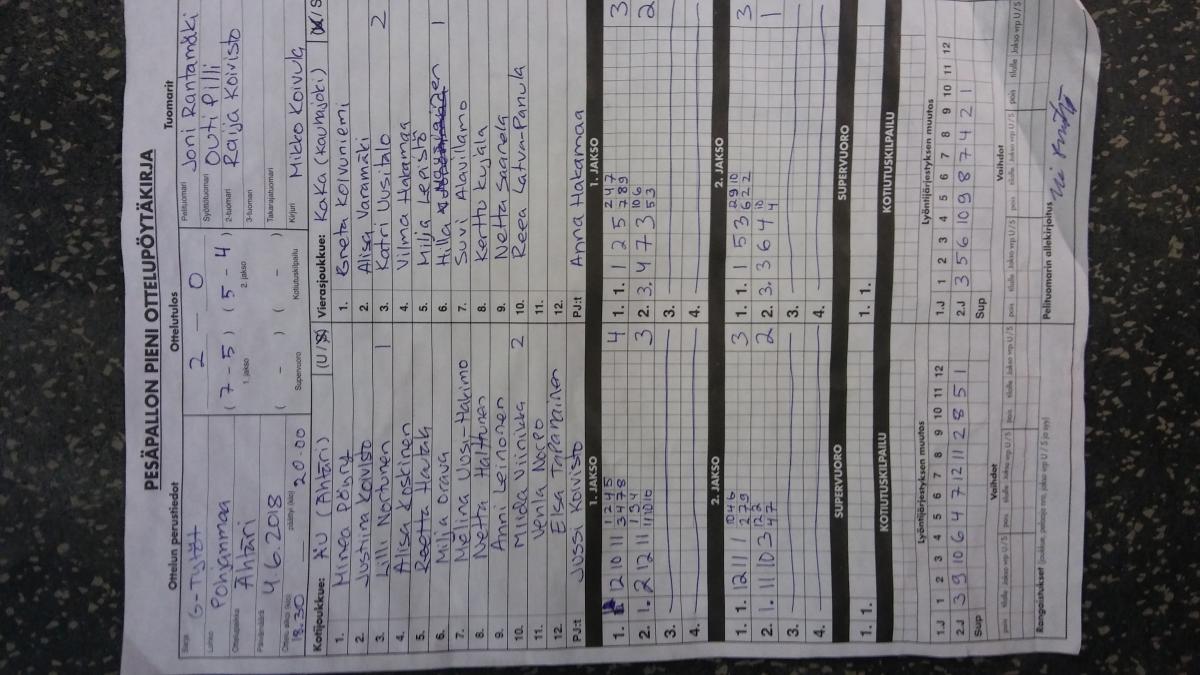 PESÄPALLON PIENI OTTELUPÖYTÄKIRJA
Ottelun perustiedot Ottelutulos Tuomarit
Sarja G-Tytöt 2 – 0 Pelituomari Joni Rantamäki
Lohko Pohjanmaa (7-5) (5-4) Syöttötuomari Outi Pilli
1. jakso 2. jakso
Ottelupaikka Ähtäri 2-tuomari Raija Koivisto
3-tuomari
Päivämäärä 4.6.2018 ( - ) ( - ) Takarajatuomari
Supervuoro Kotiutuskilpailu
18.30 20.00 Kirjuri Mikko Koivula
Kotijoukkue: ÄU (Ähtäri) (U/S) Vierasjoukkue: KaKa (Kauhajoki) (U/S
1. Minea Pöhry 1. Greta Koivuniemi
2. Justiina Koivisto 2. Alisa Varamäki
3. Lilli Nortunen 1 3. Katri Uusitalo 2
4. Alisa Koskinen 4. Vilma Hakamaa
5. Reetta Hautala 5. Milja Lepistö
6. Milja Orava 6. Hilla 1
7. Melina Uusi-Hakimo 7. Suvi Alavillamo
8. Netta Halttunen 8. Kerttu Kyjälä
9. Anni Leinonen 9. Netta Saarela
10. Miida Viinikka 2 10. Reea Latvala-Panula
11. Venla Norpo 11.
12. Elsa Tapaninen 12.
PJ:t Jussi Koivisto PJ:t Anna Hakamaa
1. JAKSO 1. JAKSO
1. 12 10 11 1 2 4 5 4 1. 1. 1 2 5 2 4 7 3
3 4 7 8 7 8 9
2. 1. 2 12 11 1 3 4 3 2. 3. 4 7 3 10 6 2
11 10 10 5 3
3. 3.
4. 4.
2. JAKSO 2. JAKSO
1. 1. 12 11 1 10 4 6 3 1. 1. 1 5 3 2 9 10 3
2 7 9 6 2 2
2. 1. 11 10 3 12 5 2 2. 3. 3 6 4 10 1
4 7 4
3. 3.
4. 4.
SUPERVUORO SUPERVUORO
1. 1. 1. 1.
KOTIUTUSKILPAILU KOTIUTUSKILPAILU
Lyöntijärjestyksen muutos Lyöntijärjestyksen muutos
1.J 1 2 3 4 5 6 7 8 9 10 11 12 1.J 1 2 3 4 5 6 7 8 9 10 11 12
2.J 3 9 10 6 4 7 12 11 2 8 5 1 2.J 3 5 6 10 9 8 7 4 2 1
Sup Sup
Vaihdot Vaihdot
pois tilalle Jakso vrp U / S pois tilalle Jakso vrp U / S pois tilalle Jakso vrp U / S pois tilalle Jakso vrp U / S
Rangaistukset (joukkue, pelaaja nro, jakso vrp U / S ja syy) Pelituomarin allekirjoitus